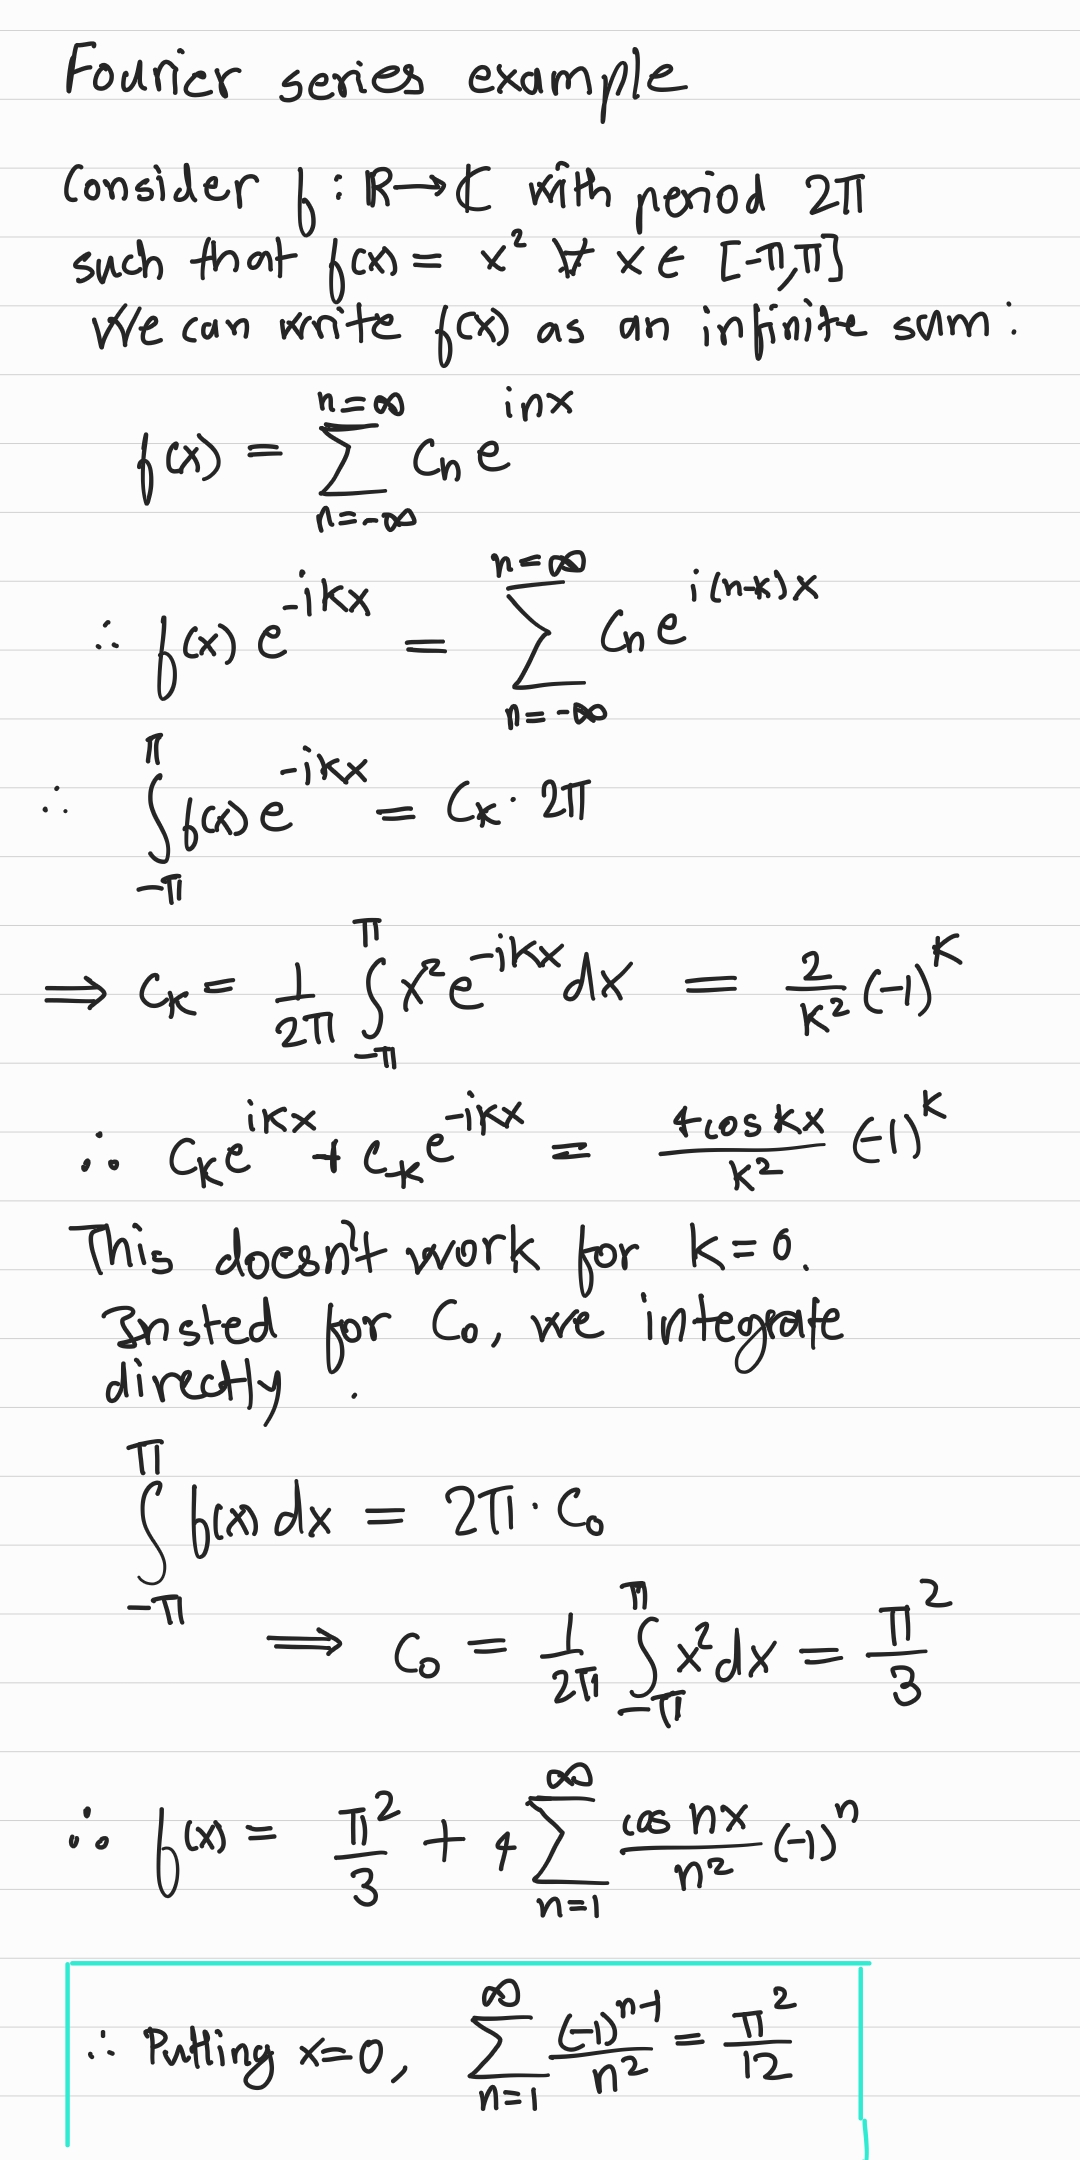 Fourier series example
Consider f : ℝ → ℂ with period 2π
such that f(x) = x² ∀ x ∈ [-π, π]
We can write f(x) as an infinite sum :
f(x) = ∑_{n=-∞}^{n=∞} Cₙ e^{inx}
∴ f(x) e^{-ikx} = ∑_{n=-∞}^{n=∞} Cₙ e^{i(n-k)x}
∴ ∫_{-π}^{π} f(x) e^{-ikx} = C_k · 2π
⟹ C_k = 1/2π ∫_{-π}^{π} x² e^{-ikx} dx = 2/k² (-1)^k
∴ C_k e^{ikx} + C_{-k} e^{-ikx} = 4cos kx/k² (-1)^k
This doesn't work for k = 0.
Insted for C₀, we integrate
directly .
∫_{-π}^{π} f(x) dx = 2π · C₀
⟹ C₀ = 1/2π ∫_{-π}^{π} x² dx = π²/3
∴ f(x) = π²/3 + 4 ∑_{n=1}^{∞} cos nx/n² (-1)^n
∴ Putting x=0, ∑_{n=1}^{∞} (-1)^{n-1}/n² = π²/12